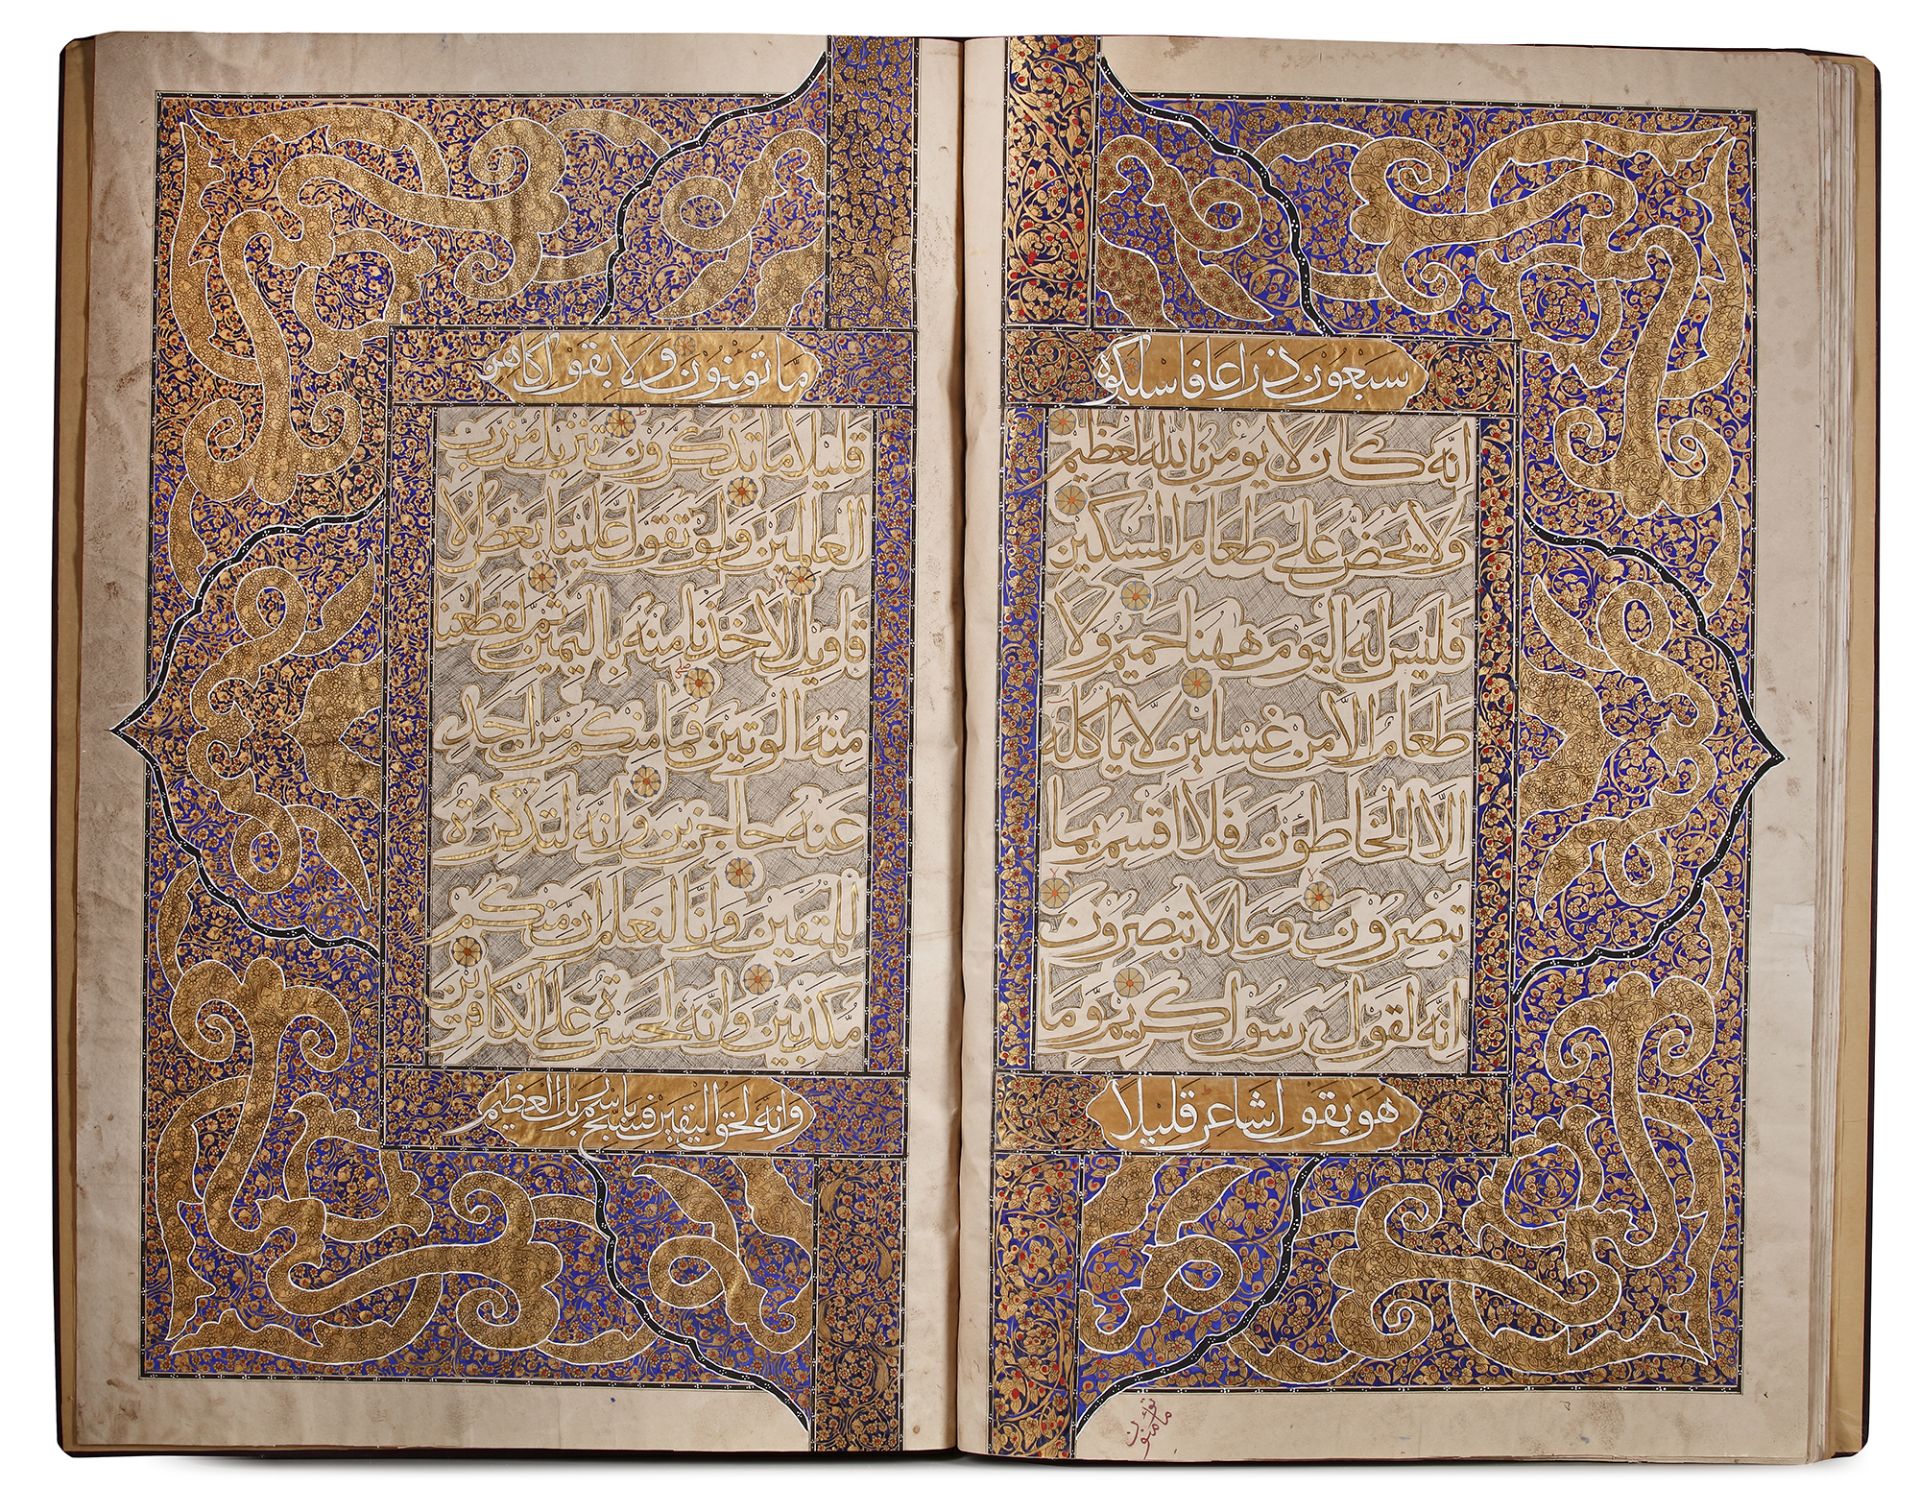 سبعون ذراعا فاسلكوه
انه كان لا يؤمن بالله العظيم
ولا يحض على طعام المسكين
فليس له اليوم ههنا حميم ولا
طعام الا من غسلين لا ياكله
الا الخاطؤن فلا اقسم بما
تبصرون وما لا تبصرون
انه لقول رسول كريم وما
هو بقول شاعر قليلا
ما تؤمنون
ما تومنون ولا بقول كاهن
قليلا ما تذكرون تنزيل من رب
العالمين ولو تقول علينا بعض الا
قاويل لاخذنا منه باليمين ثم لقطعنا
منه الوتين فما منكم من احد
عنه حاجزين وانه لتذكرة
للمتقين وانا لنعلم ان منكم
مكذبين وانه لحسرة على الكافرين
وانه لحق اليقين فسبح باسم ربك العظيم